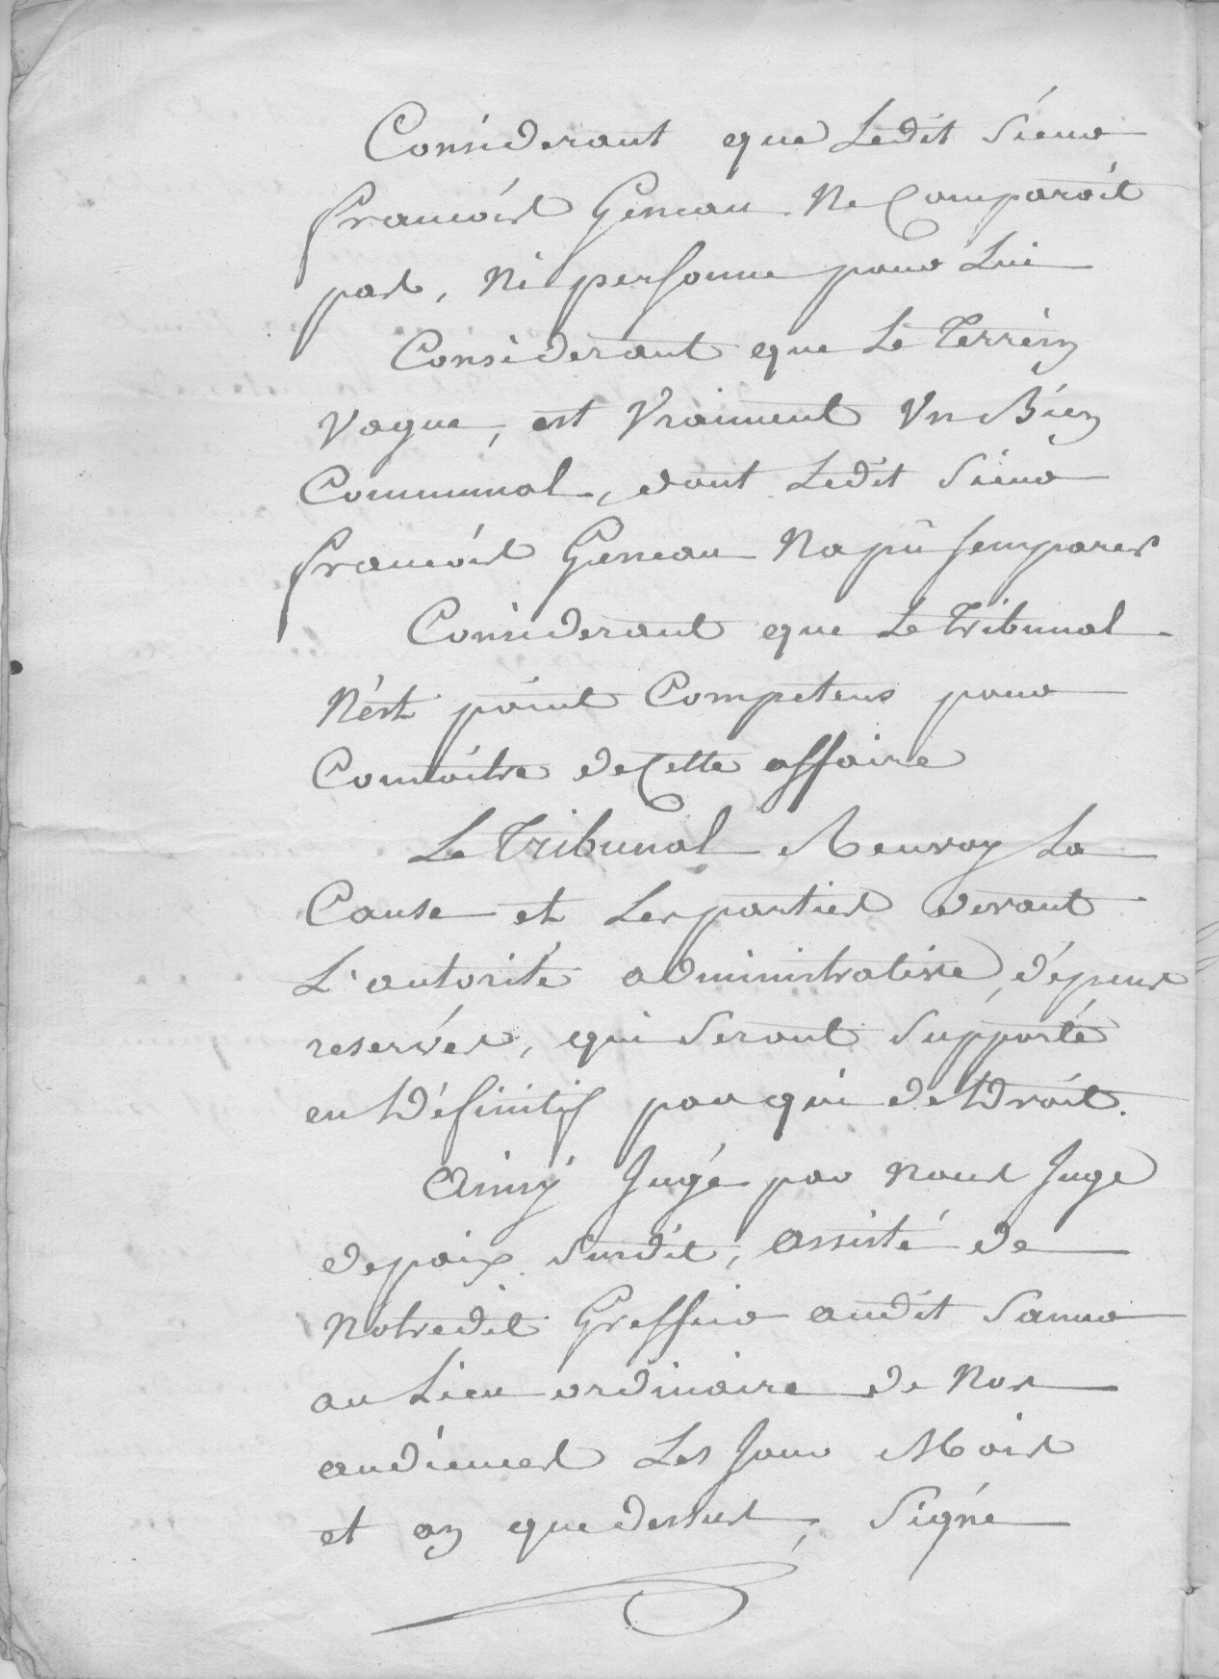 Considerant que Ledit Sieur
françois Geneau Ne Comparoit
pas, Ni personne pour Lui
Considerant que Le Terrein
Vague, est Vraiment Un Bien
Communal, dont Ledit Sieur
françois Geneau Na pû semparer
Considerant que Le Tribunal
N'est point Competens pour
Connoitre de Cette affaire
Le Tribunal Renvoy La
Cause et Les parties devant
L'autorité administrative, dépens
reservés, qui Seront Supporté
en Définitif par qui de Droit.
Ainsy Jugé par Nous Juge
de paix Susdit, assisté de
Notredit Greffier audit
au Lieu ordinaire de Nos
audiences Les Jour Mois
et an que dessus, Signé